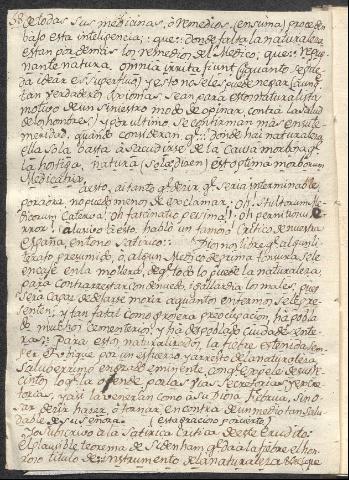 de todas sus medicinas, ò remedios (en suma) procede
bajo esta inteligencia: que: donde falta la naturaleza
estan por demàs los remedios del Medico; que: repug-
nante natura, omnia irrita fiunt (
da idear es superfluo) y esto no se les puede negar (aun
tan verdadero axioma) sean para estos naturalistas
motivo de un siniestro modo de opinar, contra la salud
de los hombres) y por ultimo se confirman mas en su te-
meridad, quando consideran q.e: donde hai naturaleza
ella sola basta à sacudirse de la causa morbosa q.e
la hostiga, natura (se dicen) est optima morborum
Medicatrix.
à esto, ai tanto q.e decir q.e seria interminable
por aora, no puedo menos de exclamar: oh! stultorum Me-
dicorum Caterva! oh fascinatio pesima!! oh perniciosus e-
rror! alusivo à esto, hablò un famoso Critico de nuestra
españa, en tono satirico:: Dios nos libre q.e algun li-
terato presumido, ò, algun Medico de prima tonsura, se le
encaje en la mollera, de q.e todo lo puede la naturaleza,
para contrarrestar con denuedo, i gallardia los males, pues
serà capaz de dejarse morir à quantos enfermos se le pre-
senten; y tan fatal como grosera preocupacion, hà pobla-
do muchos cementerios, y hà despoblado ciudades ente-
ras:: para estos naturalistas, la fiebre es tenida siem-
pre
por un esfuerzo y arresto de la naturaleza,
saludverrimo en grado eminente, con q.e expele de sus re-
cintos lo q.e la ofende por las vias secretorias y excre-
torias, y asi la veneran como à su Diosa Februa, sin o-
sar decir, hacer, ò tomar en contra de un medio tan salu-
dable de su señora. (està gracioso por cierto)
Yo subscrivo à la satirica critica de este erudito:
el plausible teorema de Sidenham q.e da à la fiebre el hon-
roso titulo de: instrumento de la naturaleza